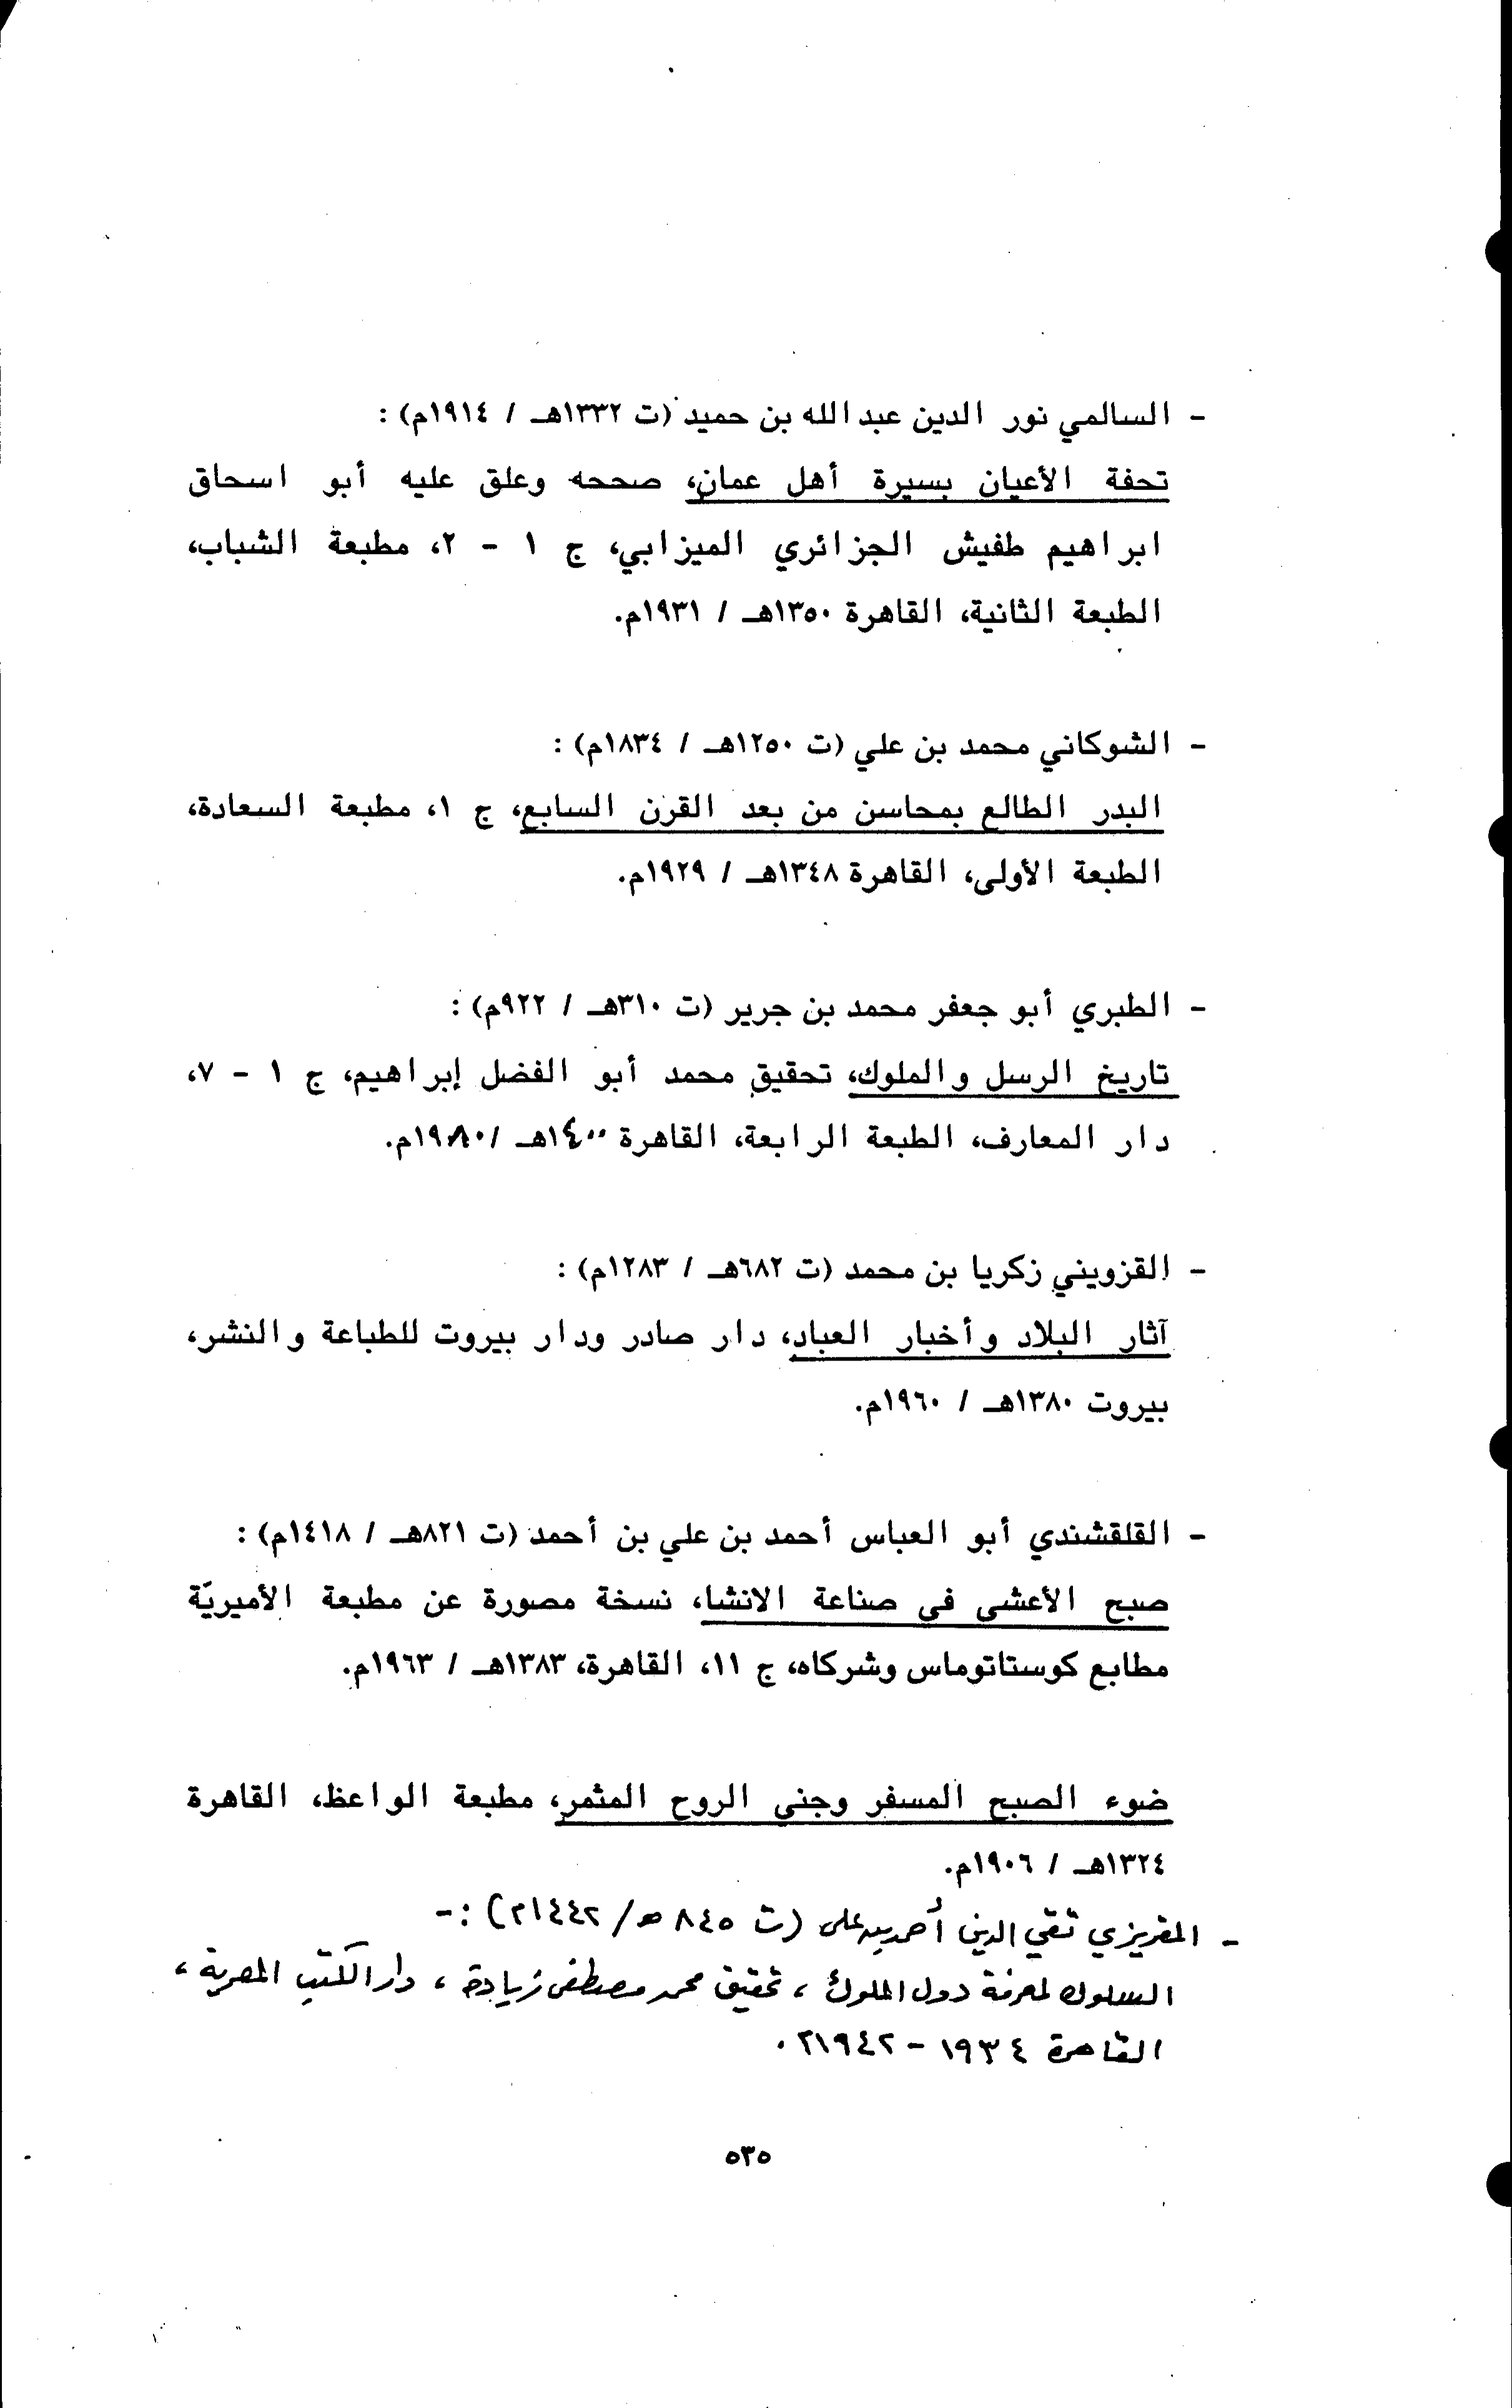 - السالمي نور الدين عبدالله بن حميد (ت ١٣٣٢هـ / ١٩١٤م) :
تحفة الأعيان بسيرة أهل عمان، صححه وعلق عليه أبو اسحاق
ابراهيم طفيش الجزائري الميزابي، ج ١ - ٢، مطبعة الشباب،
الطبعة الثانية، القاهرة ١٣٥٠هـ / ١٩٣١م.
- الشوكاني محمد بن علي (ت ١٢٥٠هـ / ١٨٣٤م) :
البدر الطالع بمحاسن من بعد القرن السابع، ج ١، مطبعة السعادة،
الطبعة الأولى، القاهرة ١٣٤٨هـ / ١٩٢٩م.
- الطبري أبو جعفر محمد بن جرير (ت ٣١٠هـ / ٩٢٢م) :
تاريخ الرسل والملوك، تحقيق محمد أبو الفضل إبراهيم، ج ١ - ٧،
دار المعارف، الطبعة الرابعة، القاهرة ١٤٠٠هـ /١٩٨٠م.
- القزويني زكريا بن محمد (ت ٦٨٢هـ / ١٢٨٣م) :
آثار البلاد وأخبار العباد، دار صادر ودار بيروت للطباعة والنشر،
بيروت ١٣٨٠هـ / ١٩٦٠م.
- القلقشندي أبو العباس أحمد بن علي بن أحمد (ت ٨٢١هـ / ١٤١٨م) :
صبح الأعشى في صناعة الانشا، نسخة مصورة عن مطبعة الأميريّة
مطابع كوستاتوماس وشركاه، ج ١١، القاهرة، ١٣٨٣هـ / ١٩٦٣م.
ضوء الصبح المسفر وجني الروح المثمر، مطبعة الواعظ، القاهرة
١٣٢٤هـ / ١٩٠٦م.
- المقريزي تقي الدين أحمد بن على (ت ٨٤٥ هـ/ ١٤٤٢م) :-
السلوك لمعرفة دول الملوك ، تحقيق محمد مصطفى زيادة ، دار الكتب المصرية ،
القاهرة ١٩٣٤ - ١٩٤٢م .
٥٣٥